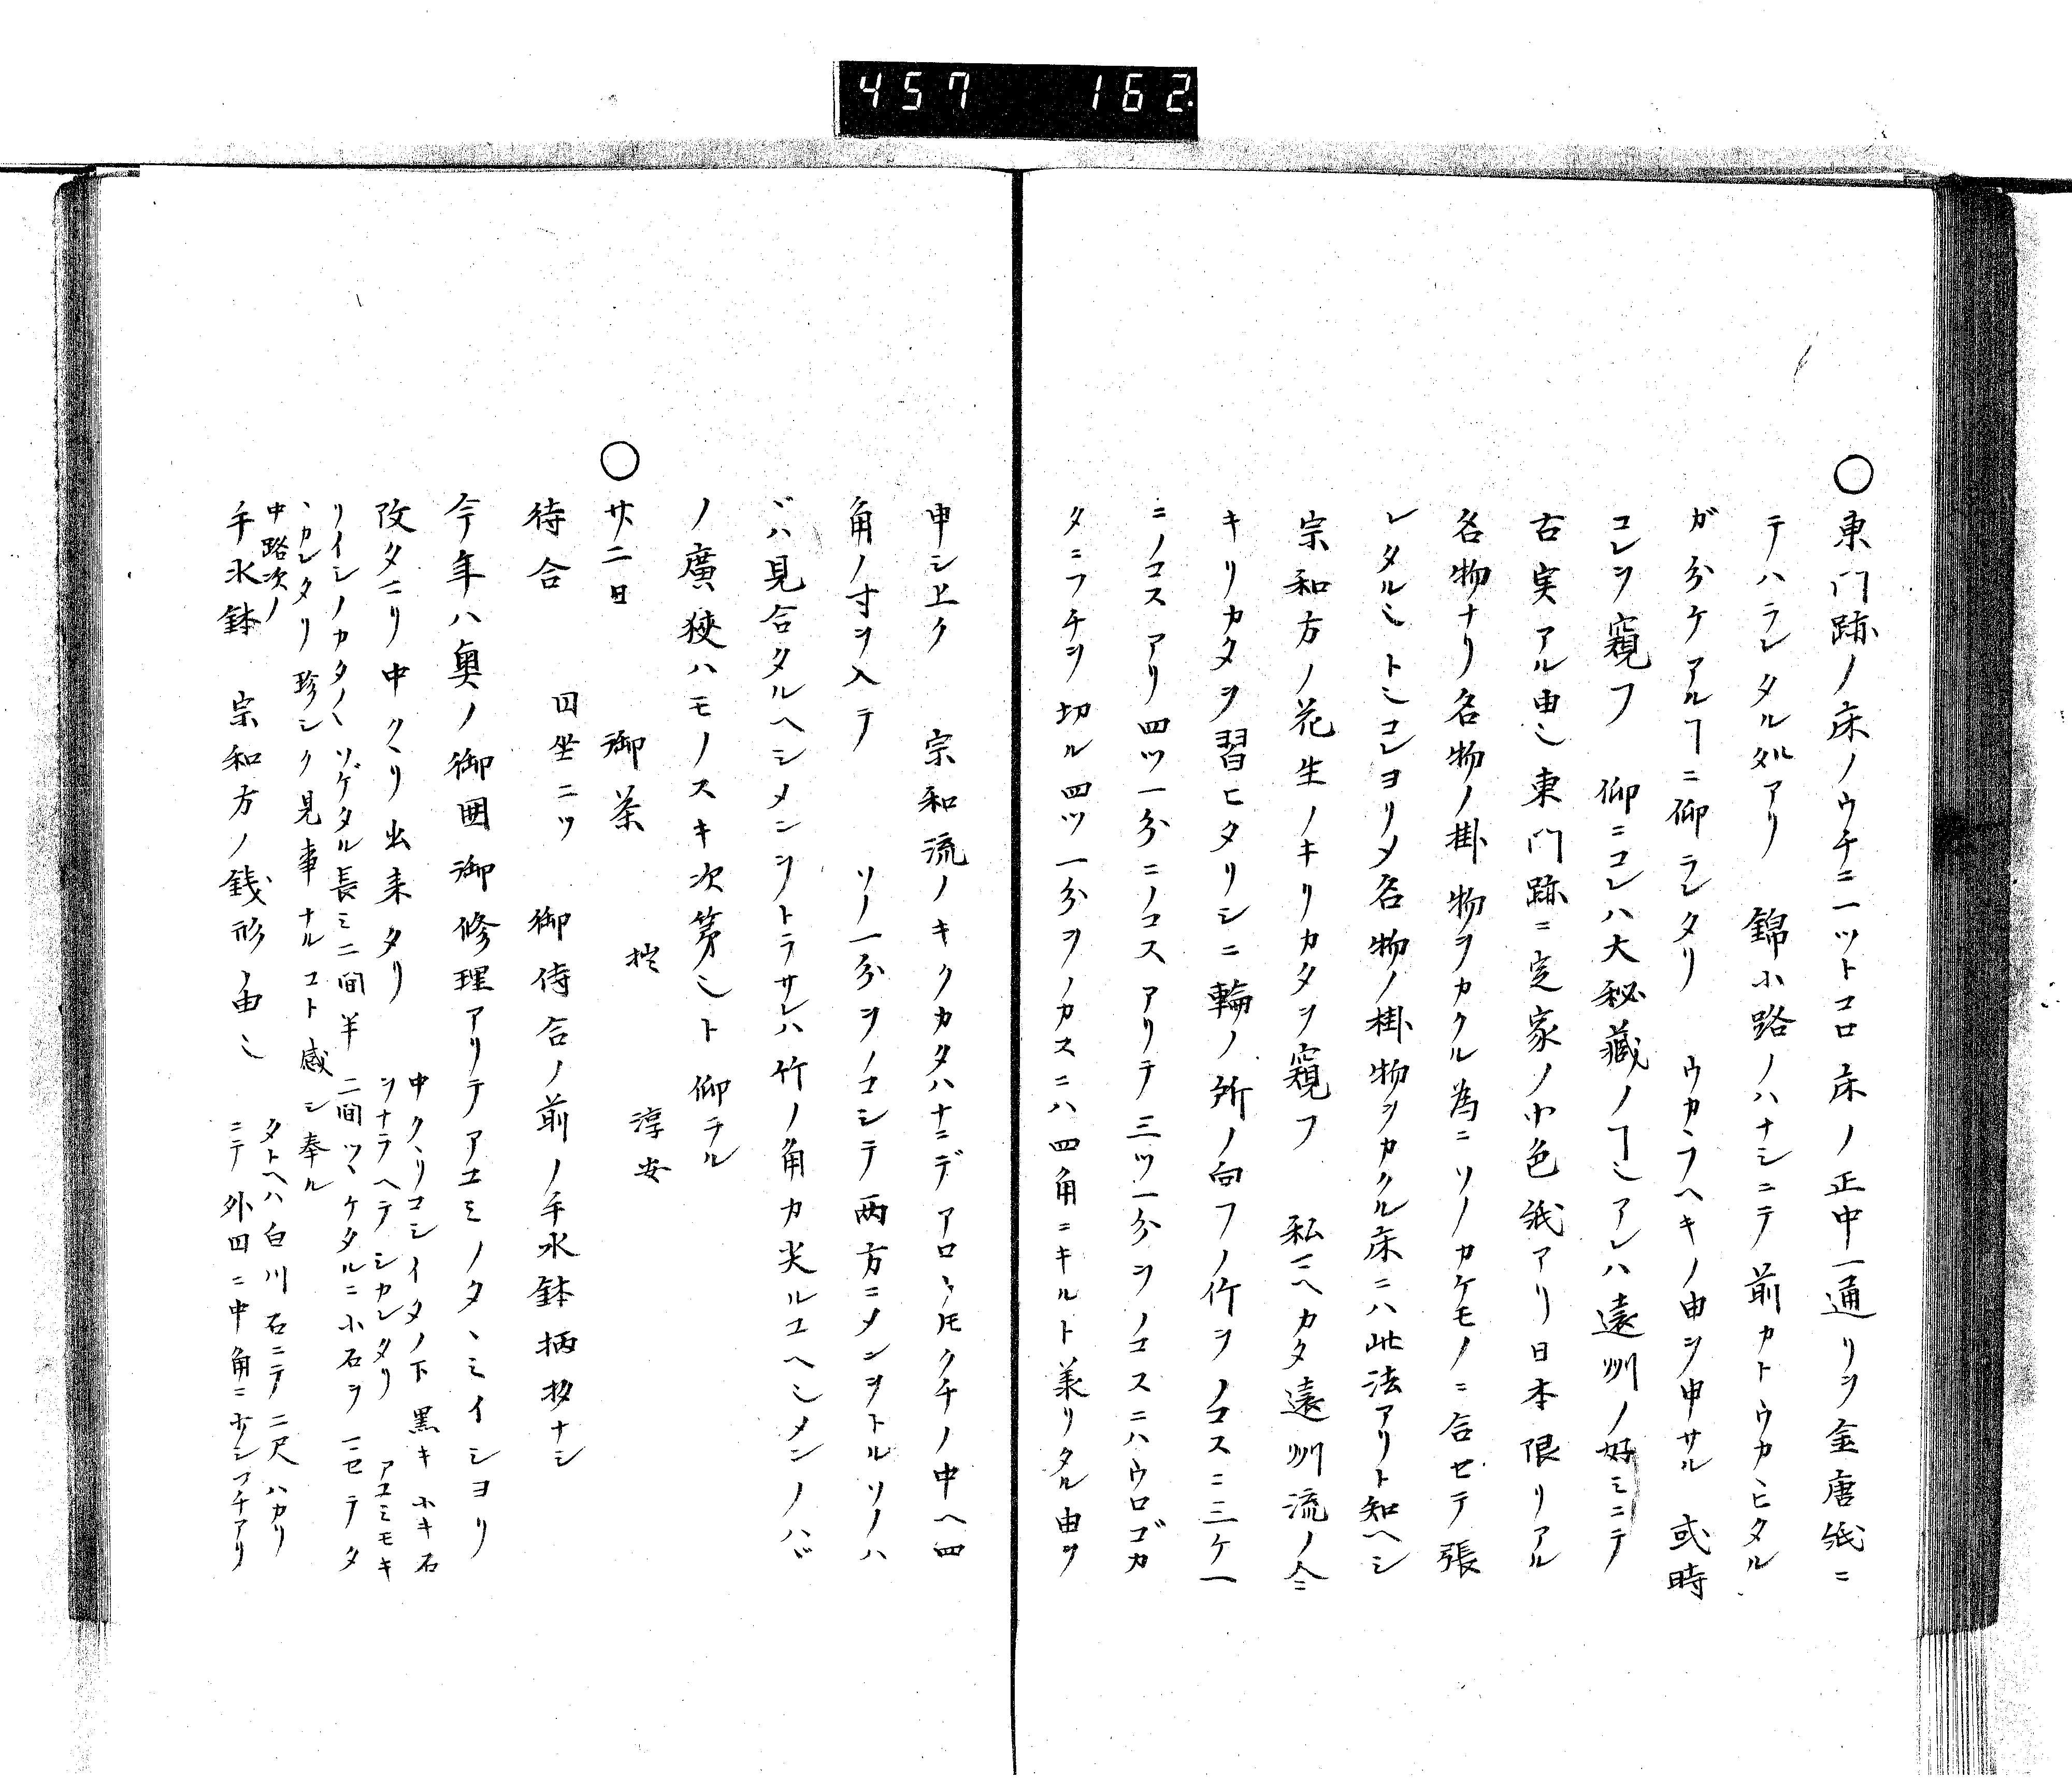 457 162
○東門跡ノ床ノウチニ一ツトコロ床ノ正中一通リヲ金唐紙ニ
テハラレタル処アリ 錦小路ノハナシニテ前カトウカヽヒタル
ガ分ケアルヿニ仰ラレタリ ウカヽフヘキノ由ヲ申サル 或時
コレヲ窺フ 仰ニコレハ大秘蔵ノヿ也アレハ遠州ノ好ミニテ
古実アル由也東門跡ニ定家ノ小色紙アリ日本限リアル
名物ナリ名物ノ掛物ヲカクル為ニソノカケモノニ合セテ張
レタル也ト也コレヨリ〆名物ノ掛物ヲカクル床ニハ此法アリト知ヘシ
宗和方ノ花生ノキリカタヲ窺フ 私ニヘカタ遠州流ノ今ニ
キリカタヲ習ヒタリシニ輪ノ所ノ向フノ竹ヲノコスニ三ケ一
ニノコスアリ四ツ一分ニノコスアリテ三ツ一分ヲノコスニハウロゴカ
タニフチヲ切ル四ツ一分ヲノカスニハ四角ニキルト羕リタル由ヲ
申シ上ク 宗和流ノキクカタハナニデアロヽ𪜈クチノ中ヘ四
角ノ寸ヲ入テ ソノ一分ヲノコシテ両方ニメンヲトルソノハ
ヾハ見合タルヘシメンヲトラサレハ竹ノ角カ尖ルユヘ也メンノハヾ
ノ廣狹ハモノスキ次第也ト仰ラル
○廿二日 御茶 拙 淳安
待合 四坐ニツ 御待合ノ前ノ手水鉢柄杓ナシ
今年ハ奥ノ御囲御修理アリテアユミノタヽミイシヨリ
改タニリ中クヽリ出来タリ 中クヽリコシイタノ下黒キ小キ石
ヲナラヘテシカレタリ アユミモキ
リイシノカタノヽソゲタル長ミ二間半 二間ツヽケタルニ小石ヲ一セテタ
ヽカレタリ珍シク見事ナルコト感シ奉ル
中路次ノ
手水鉢 宗和方ノ銭形ノ由也 タトヘハ白川石ニテ二尺ハカリ
ニテ外四ニ中角ニ少シフチアリ